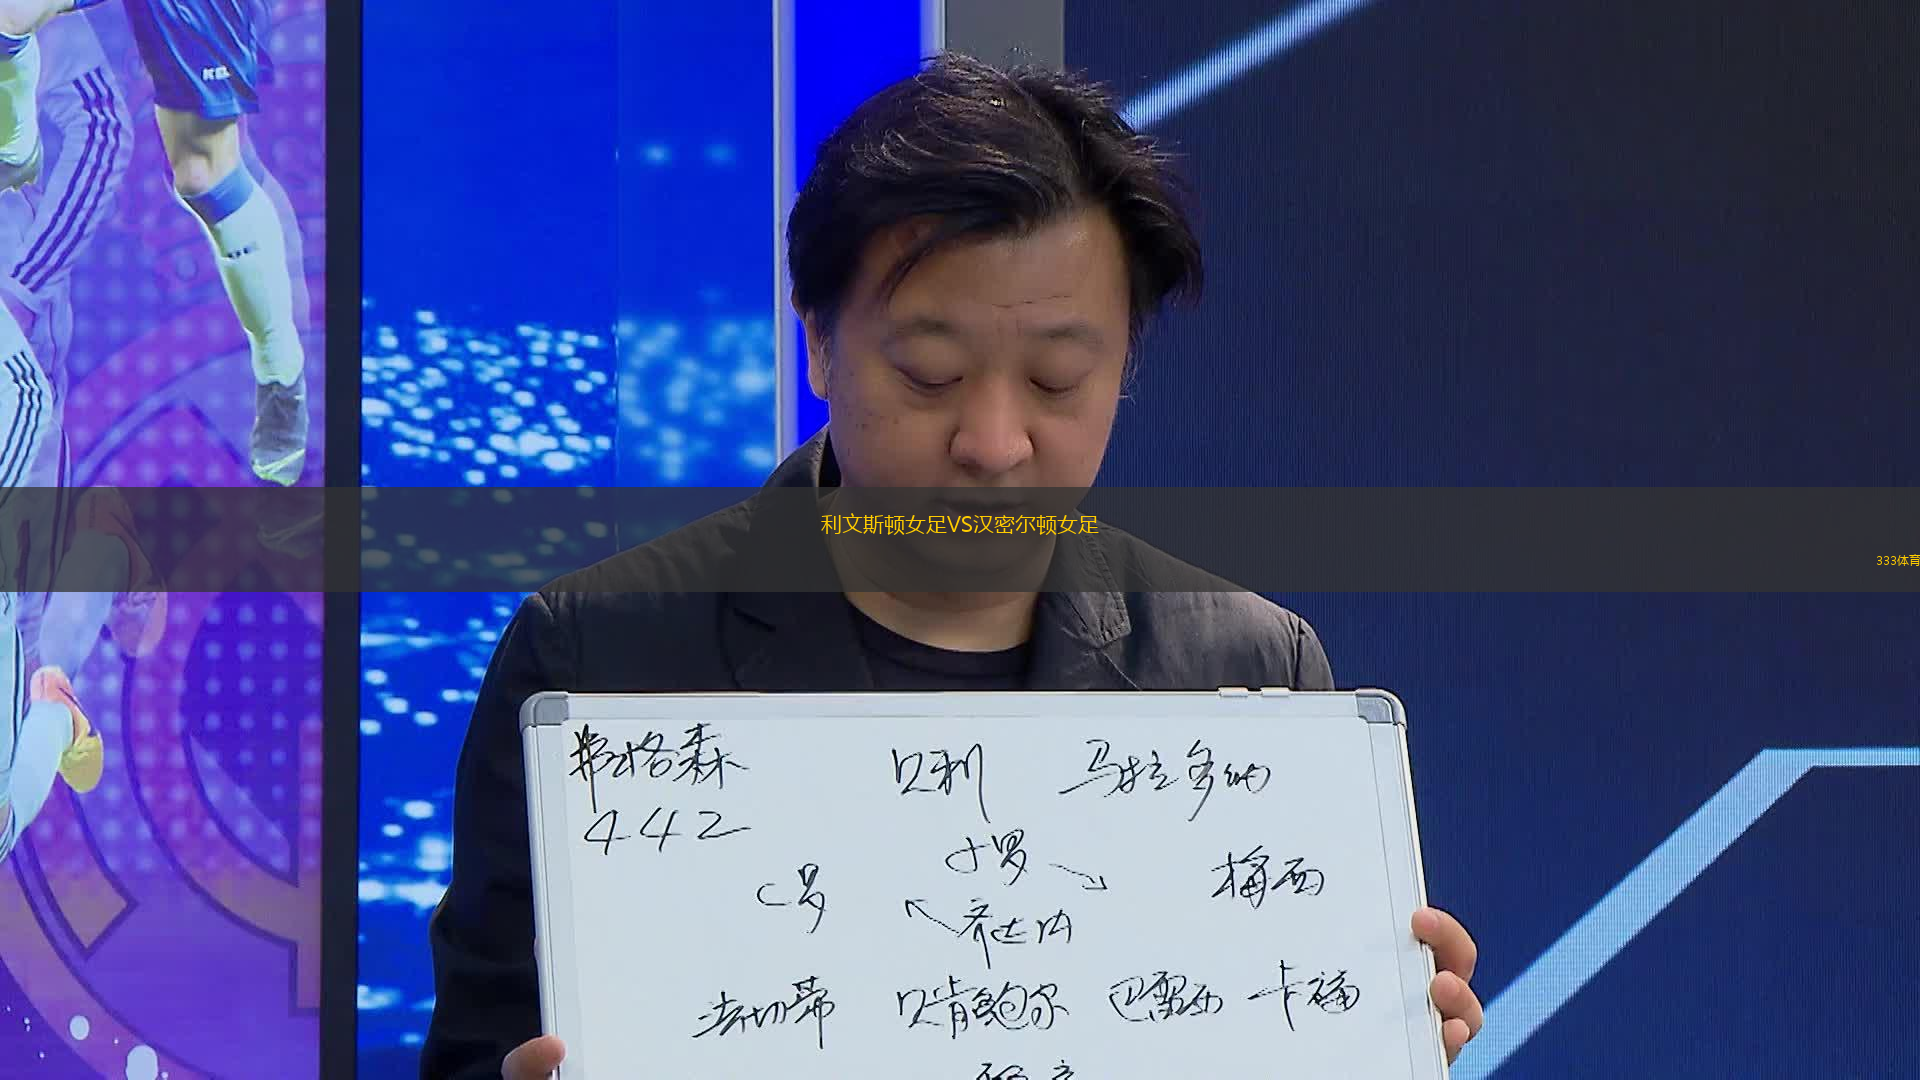 利文斯顿女足VS汉密尔顿女足
333体育
弗格森 贝利 马拉多纳
442
小罗
C罗 梅西
齐达内
法切蒂 贝肯鲍尔 巴雷西 卡福